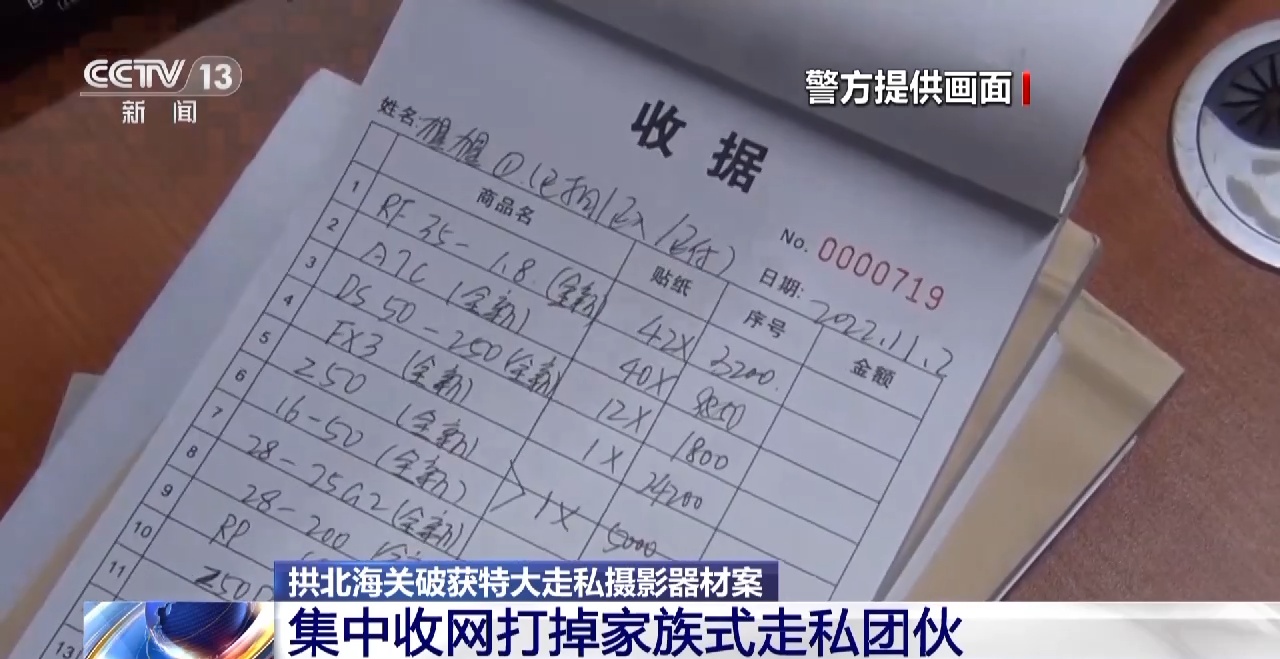 CCTV 13
新闻
警方提供画面
收据
姓名:
No. 0000719
日期: 2022.11.2
商品名 贴纸 序号 金额
1 RF 35-1.8 (全新) 42X 3200.
2 A7C (全新) 40X
3 DS 50-250 (全新) 12X 1800
4 FX3 (全新) 1X 24200
5 Z50 (全新)
6 16-50 (全新) 1X 5000
7 28-75G2 (全新)
8 28-200
9 RP
10 Z50
11
13
拱北海关破获特大走私摄影器材案
集中收网打掉家族式走私团伙